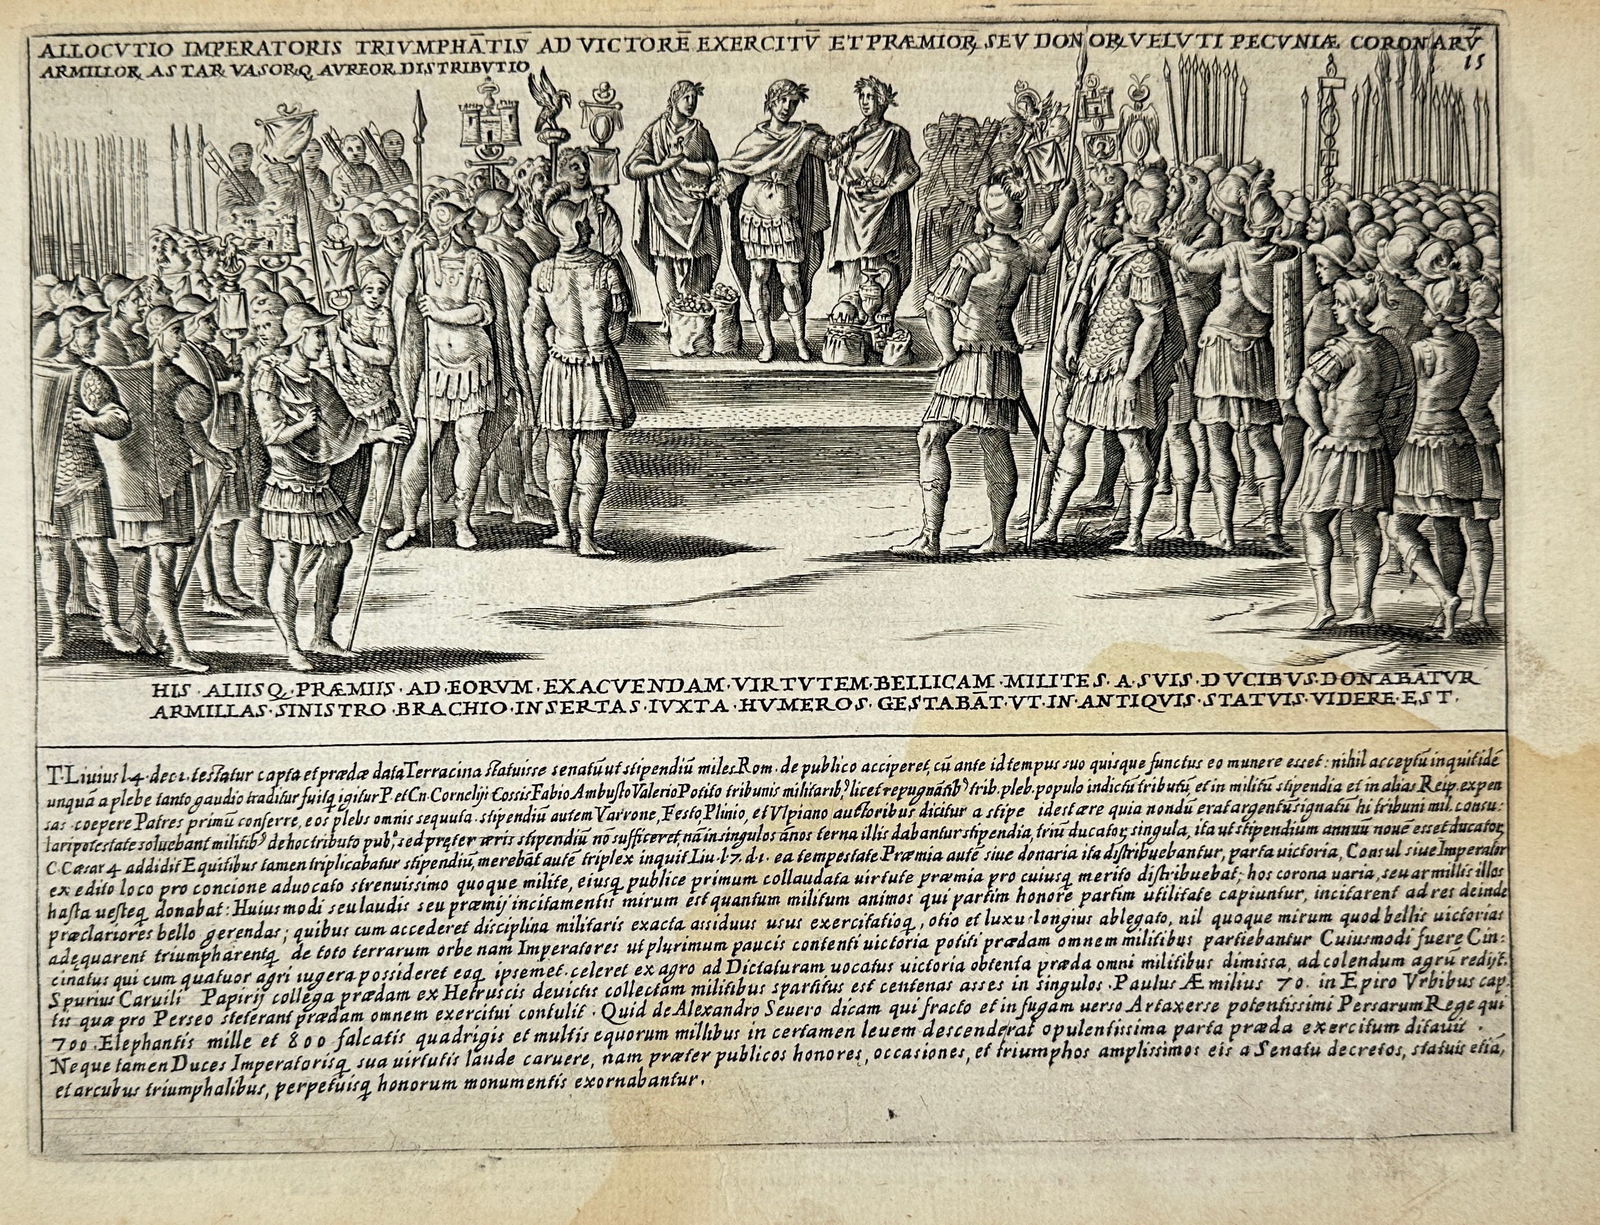 ALLOCVTIO IMPERATORIS TRIVMPHĀTIS AD VICTORĒ EXERCITV̄ ET PRÆMIOꝜ SEV DONOꝜ VELVTI PECVNIÆ CORONARV̄
ARMILLOꝜ ASTAꝜ VASORQ AVREOR DISTRIBVTIO
15
HIS · ALIISQ · PRÆMIIS · AD · EORVM · EXACVENDAM · VIRTVTEM · BELLICAM · MILITES · A · SVIS · DVCIBVS · DONABĀTVR
ARMILLAS · SINISTRO · BRACHIO · INSERTAS · IVXTA · HVMEROS · GESTABĀT · VT · IN · ANTIQVIS · STATVIS · VIDERE · EST ·
T. Liuius l. 4. dec. 1. testatur capta et prædæ data Terracina statuisse senatū ut stipendiū miles Rom. de publico acciperet, cū ante id tempus suo quisque functus eo munere esset: nihil acceptū inquit idē
unquā a plebe tanto gaudio traditur fuitq igitur P. et Cn. Cornelijs Cossis Fabio Ambusto Valerio Potito tribunis militarib9 licet repugnātib9 trib. pleb. populo indictū tributū, et in militū stipendia et in alias Reip. expen
sas coepere Patres primū conferre, eos plebs omnis sequuta. stipendiū autem Varrone, Festo, Plinio, et Vlpiano auctoribus dicitur a stipe idest ære quia nondū erat argentū signatū hi tribuni mil. consu:
lari potestate soluebant militib9 de hoc tributo pub9, sed præter æris stipendiū nō sufficeret, nā in singulos ānos terna illis dabantur stipendia, triū ducator, singula, ita ut stipendium annuū nouē esset ducator,
C. Cæsar 4 addidit Equitibus tamen triplicabatur stipendiū, merebāt autē triplex inquit Liu. l. 7. d. 1. ea tempestate Præmia autē siue donaria ita distribuebantur, parta uictoria, Consul siue Imperator
ex edito loco pro concione aduocato strenuissimo quoque milite, eiusq publice primum collaudata uirtute præmia pro cuiusq merito distribuebat; hos corona uaria, seu armillis illos
hasta uesteq donabat: Huiusmodi seu laudis seu præmij incitamentis mirum est quantum militum animos qui partim honore partim utilitate capiuntur, incitarent ad res deinde
præclariores bello gerendas; quibus cum accederet disciplina militaris exacta assiduus usus exercitatioq, otio et luxu longius ablegato, nil quoque mirum quod bellis uictorias
adęquarent triumpharentq de toto terrarum orbe nam Imperatores ut plurimum paucis contenti uictoria potiti prædam omnem militibus partiebantur Cuiusmodi fuere Cin:
cinatus qui cum quatuor agri iugera possideret eoq ipsemet celeret ex agro ad Dictaturam uocatus uictoria obtenta præda omni militibus dimissa, ad colendum agrū redijt.
Spurius Caruili Papirij collega prædam ex Hetruscis deuictis collectam militibus spartitus est centenas asses in singulos. Paulus Æmilius 70. in Epiro Vrbibus cap
tis quæ pro Perseo steterant prædam omnem exercitui contulit. Quid de Alexandro Seuero dicam qui fracto et in fugam uerso Artaxerse potentissimi Persarum Rege qui
700. Elephantis mille et 800 falcatis quadrigis et multis equorum millibus in certamen leuem descenderat opulentissima parta præda exercitum ditauit.
Neque tamen Duces Imperatorisq sua uirtutis laude caruere, nam præter publicos honores, occasiones, et triumphos amplissimos eis a Senatu decretos, statuis etiā,
et arcubus triumphalibus, perpetuisq honorum monumentis exornabantur.